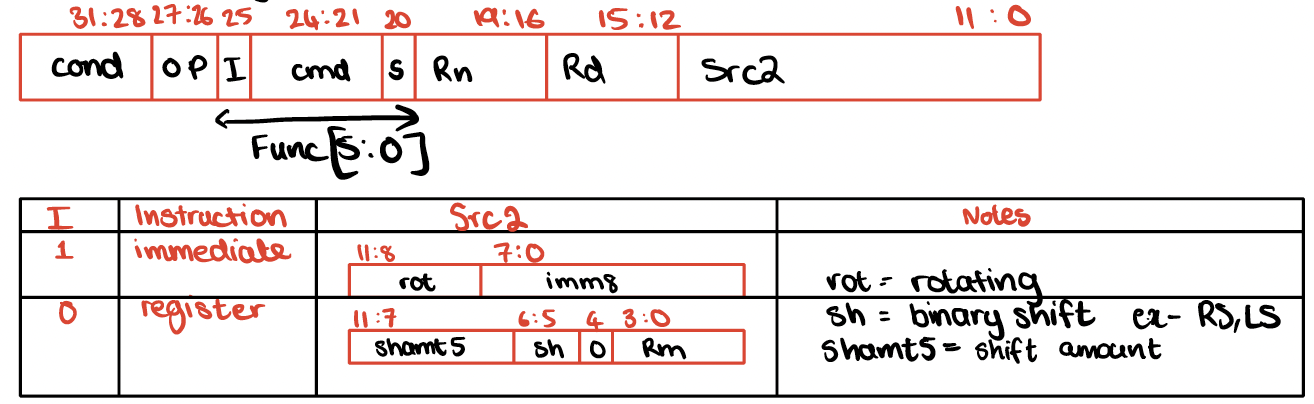 31:28 27:26 25 24:21 20 19:16 15:12 11:0
cond OP I cmd S Rn Rd Src2
Func[5:0]
I Instruction Src2 Notes
1 immediate 11:8 7:0
rot imm8 rot = rotating
0 register 11:7 6:5 4 3:0 sh = binary shift ex- RS,LS
shamt5 sh 0 Rm shamt5 = shift amount